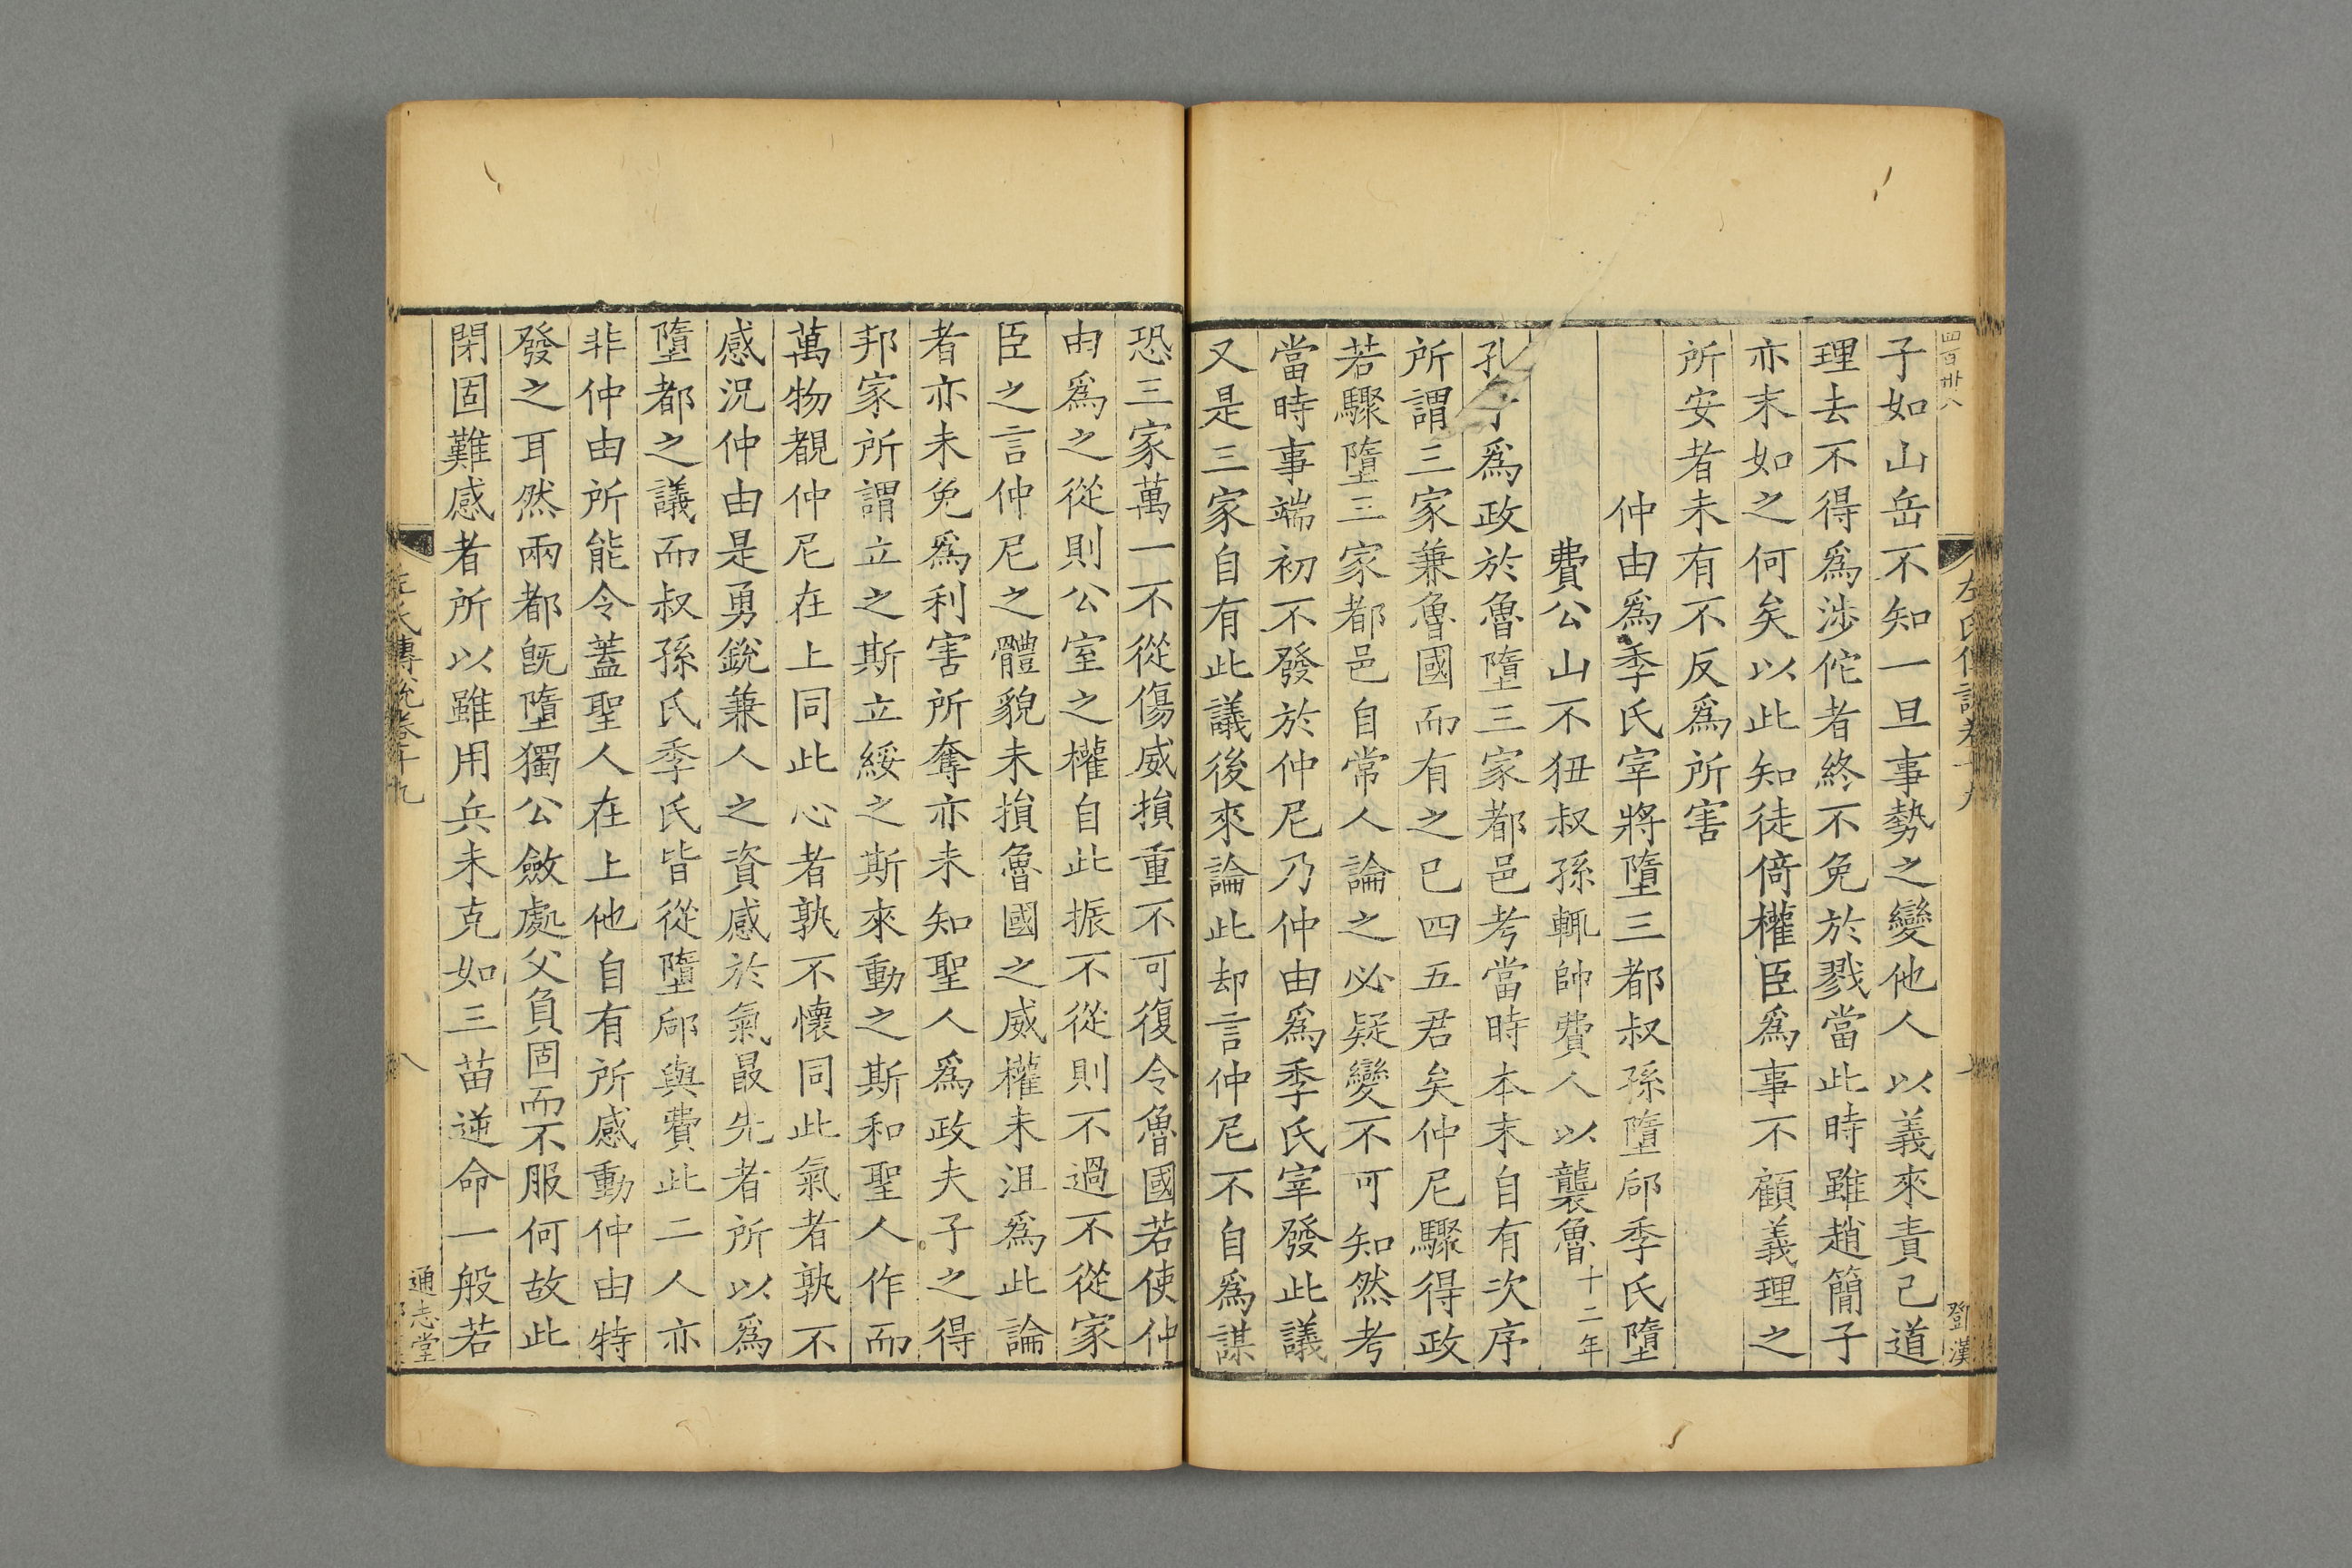 四百卅八
子如山岳不知一旦事勢之變他人以義來責己道
理去不得爲涉佗者終不免於戮當此時雖趙簡子
亦末如之何矣以此知徒倚權臣爲事不顧義理之
所安者未有不反爲所害
仲由爲季氏宰將墮三都叔孫墮郈季氏墮
費公山不狃叔孫輒帥費人以襲魯十二年
孔子爲政於魯墮三家都邑考當時本末自有次序
所謂三家兼魯國而有之已四五君矣仲尼驟得政
若驟墮三家都邑自常人論之必疑變不可知然考
當時事端初不發於仲尼乃仲由爲季氏宰發此議
又是三家自有此議後來論此却言仲尼不自爲謀
恐三家萬一不從傷威損重不可復令魯國若使仲
由爲之從則公室之權自此振不從則不過不從家
臣之言仲尼之體貌未損魯國之威權未沮爲此論
者亦未免爲利害所奪亦未知聖人爲政夫子之得
邦家所謂立之斯立綏之斯來動之斯和聖人作而
萬物覩仲尼在上同此心者孰不懷同此氣者孰不
感況仲由是勇銳兼人之資感於氣最先者所以爲
墮都之議而叔孫氏季氏皆從墮郈與費此二人亦
非仲由所能令蓋聖人在上他自有所感動仲由特
發之耳然兩都既墮獨公斂處父負固而不服何故此
閉固難感者所以雖用兵未克如三苗逆命一般若
左氏傳說卷十九
八
通志堂
左氏傳說卷十九
鄧漢